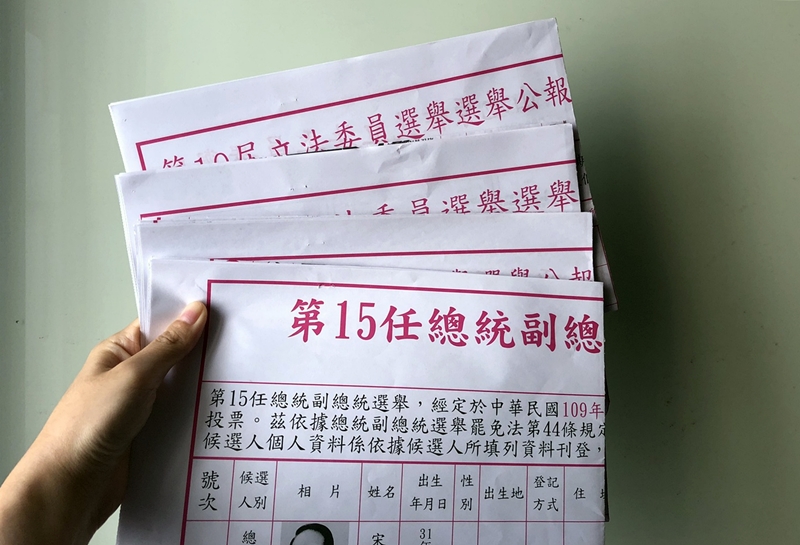 第10屆立法委員選舉選舉公報
委員選舉選舉
選舉公報
第15任總統副總
第15任總統副總統選舉，經定於中華民國109年
投票。茲依據總統副總統選舉罷免法第44條規定
候選人個人資料係依據候選人所填列資料刊登，
號次
候選人別
相片
姓名
出生年月日
性別
出生地
登記方式
住
總
宋
31